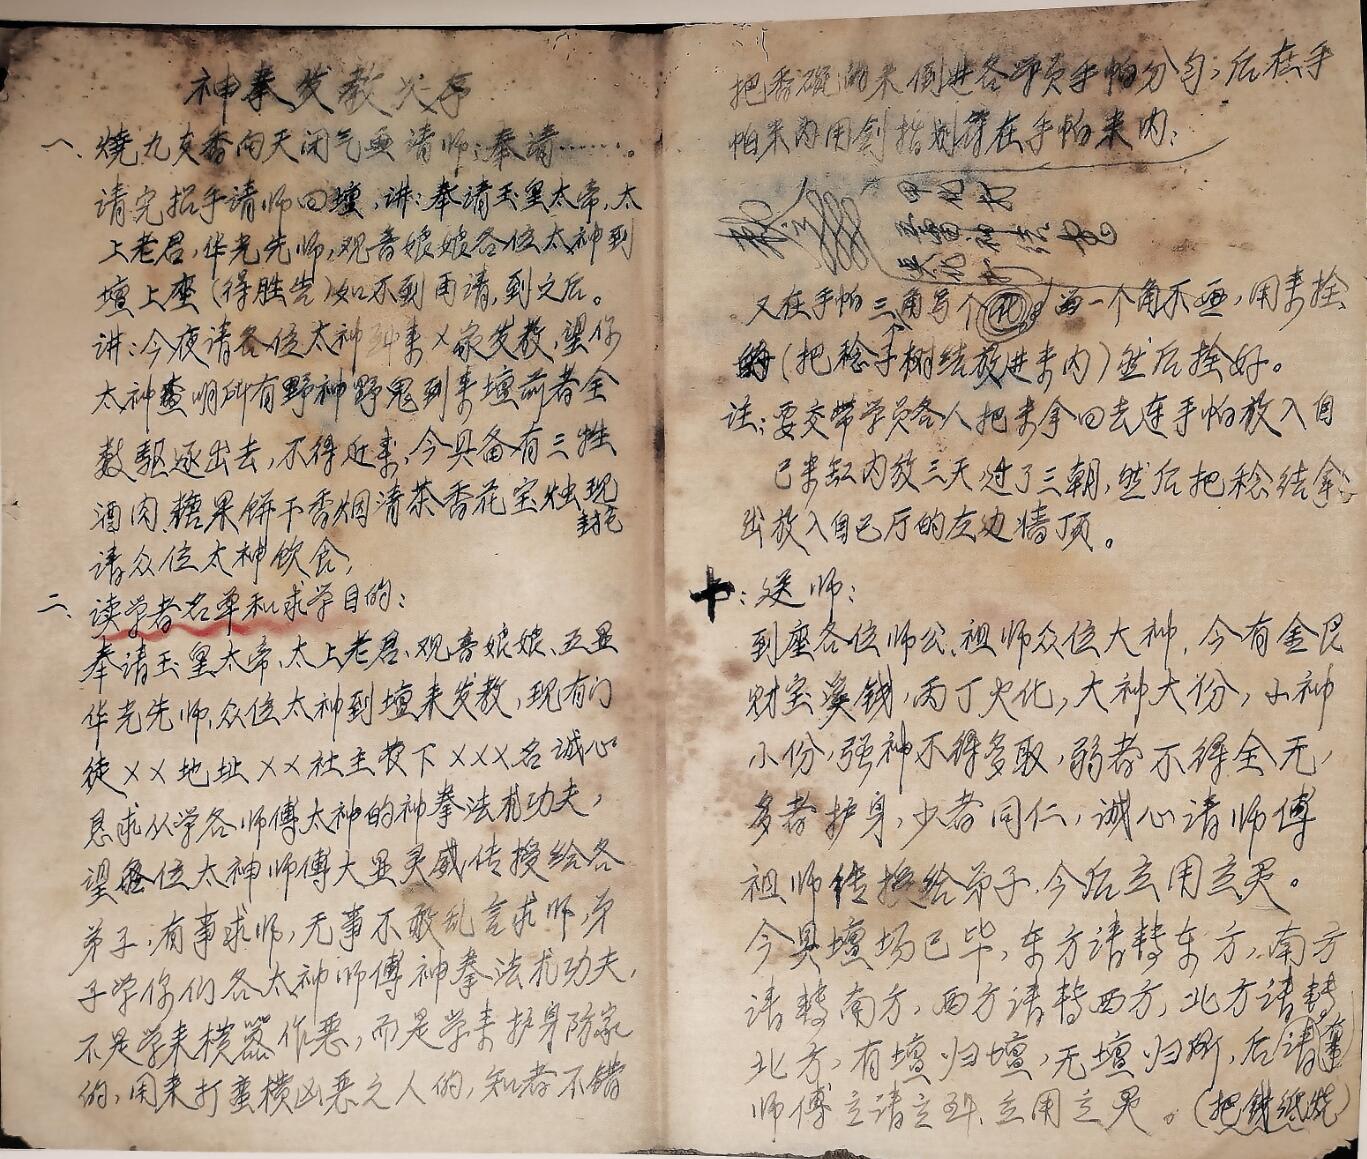 神拳发教次序
一、燒九支香向天闭气画请师:奉请……。
请完招手请师回壇,讲:奉请玉皇太帝,太
上老君,华光先师,观音娘娘各位太神到
壇上座(得胜告)如不到再请,到之后。
讲:今夜请各位太神到来×家发教,望你
太神查明所有野神野鬼到来壇前者全
数驱逐出去,不得近来,今具备有三牲
酒肉,糖果饼干香烟清茶香花宝烛现
封包
请众位太神饮食,
二、读学者名单和求学目的:
奉请玉皇太帝、太上老君、观音娘娘、五显
华光先师,众位太神到壇来发教,现有门
徒××地址××社主投下×××名诚心
恳求从学各师傅太神的神拳法术功夫,
望各位太神师傅大显灵威传授给各
弟子,有事求师,无事不敢乱言求师,弟
子学你们各太神师傅神拳法术功夫,
不是学来横蛮作恶,而是学来护身防家
的,用来打蛮横凶恶之人的,知者不错
把香碗的米倒进各学员手帕分匀;后在手
帕米内用剑指划符在手帕米内:
又在手帕三角写个 另一个角不画,用来拴
的(把稔子树结放进米内)然后拴好。
注:要交带学员各人把米拿回去连手帕放入自
己米缸内放三天过了三朝,然后把稔结拿
出放入自己厅的左边墙顶。
十:送师:
到座各位师公、祖师众位大神,今有金艮
财宝溪钱,丙丁火化,大神大份,小神
小份,强神不得多取,弱者不得全无,
多者护身,少者同仁,诚心请师傅
祖师传授给弟子,今后立用立灵。
今具壇场已毕,东方请转东方,南方
请转南方,西方请转西方,北方请转
北方,有壇归壇,无壇归所,后请
师傅立请立到,立用立灵。(把钱纸烧)